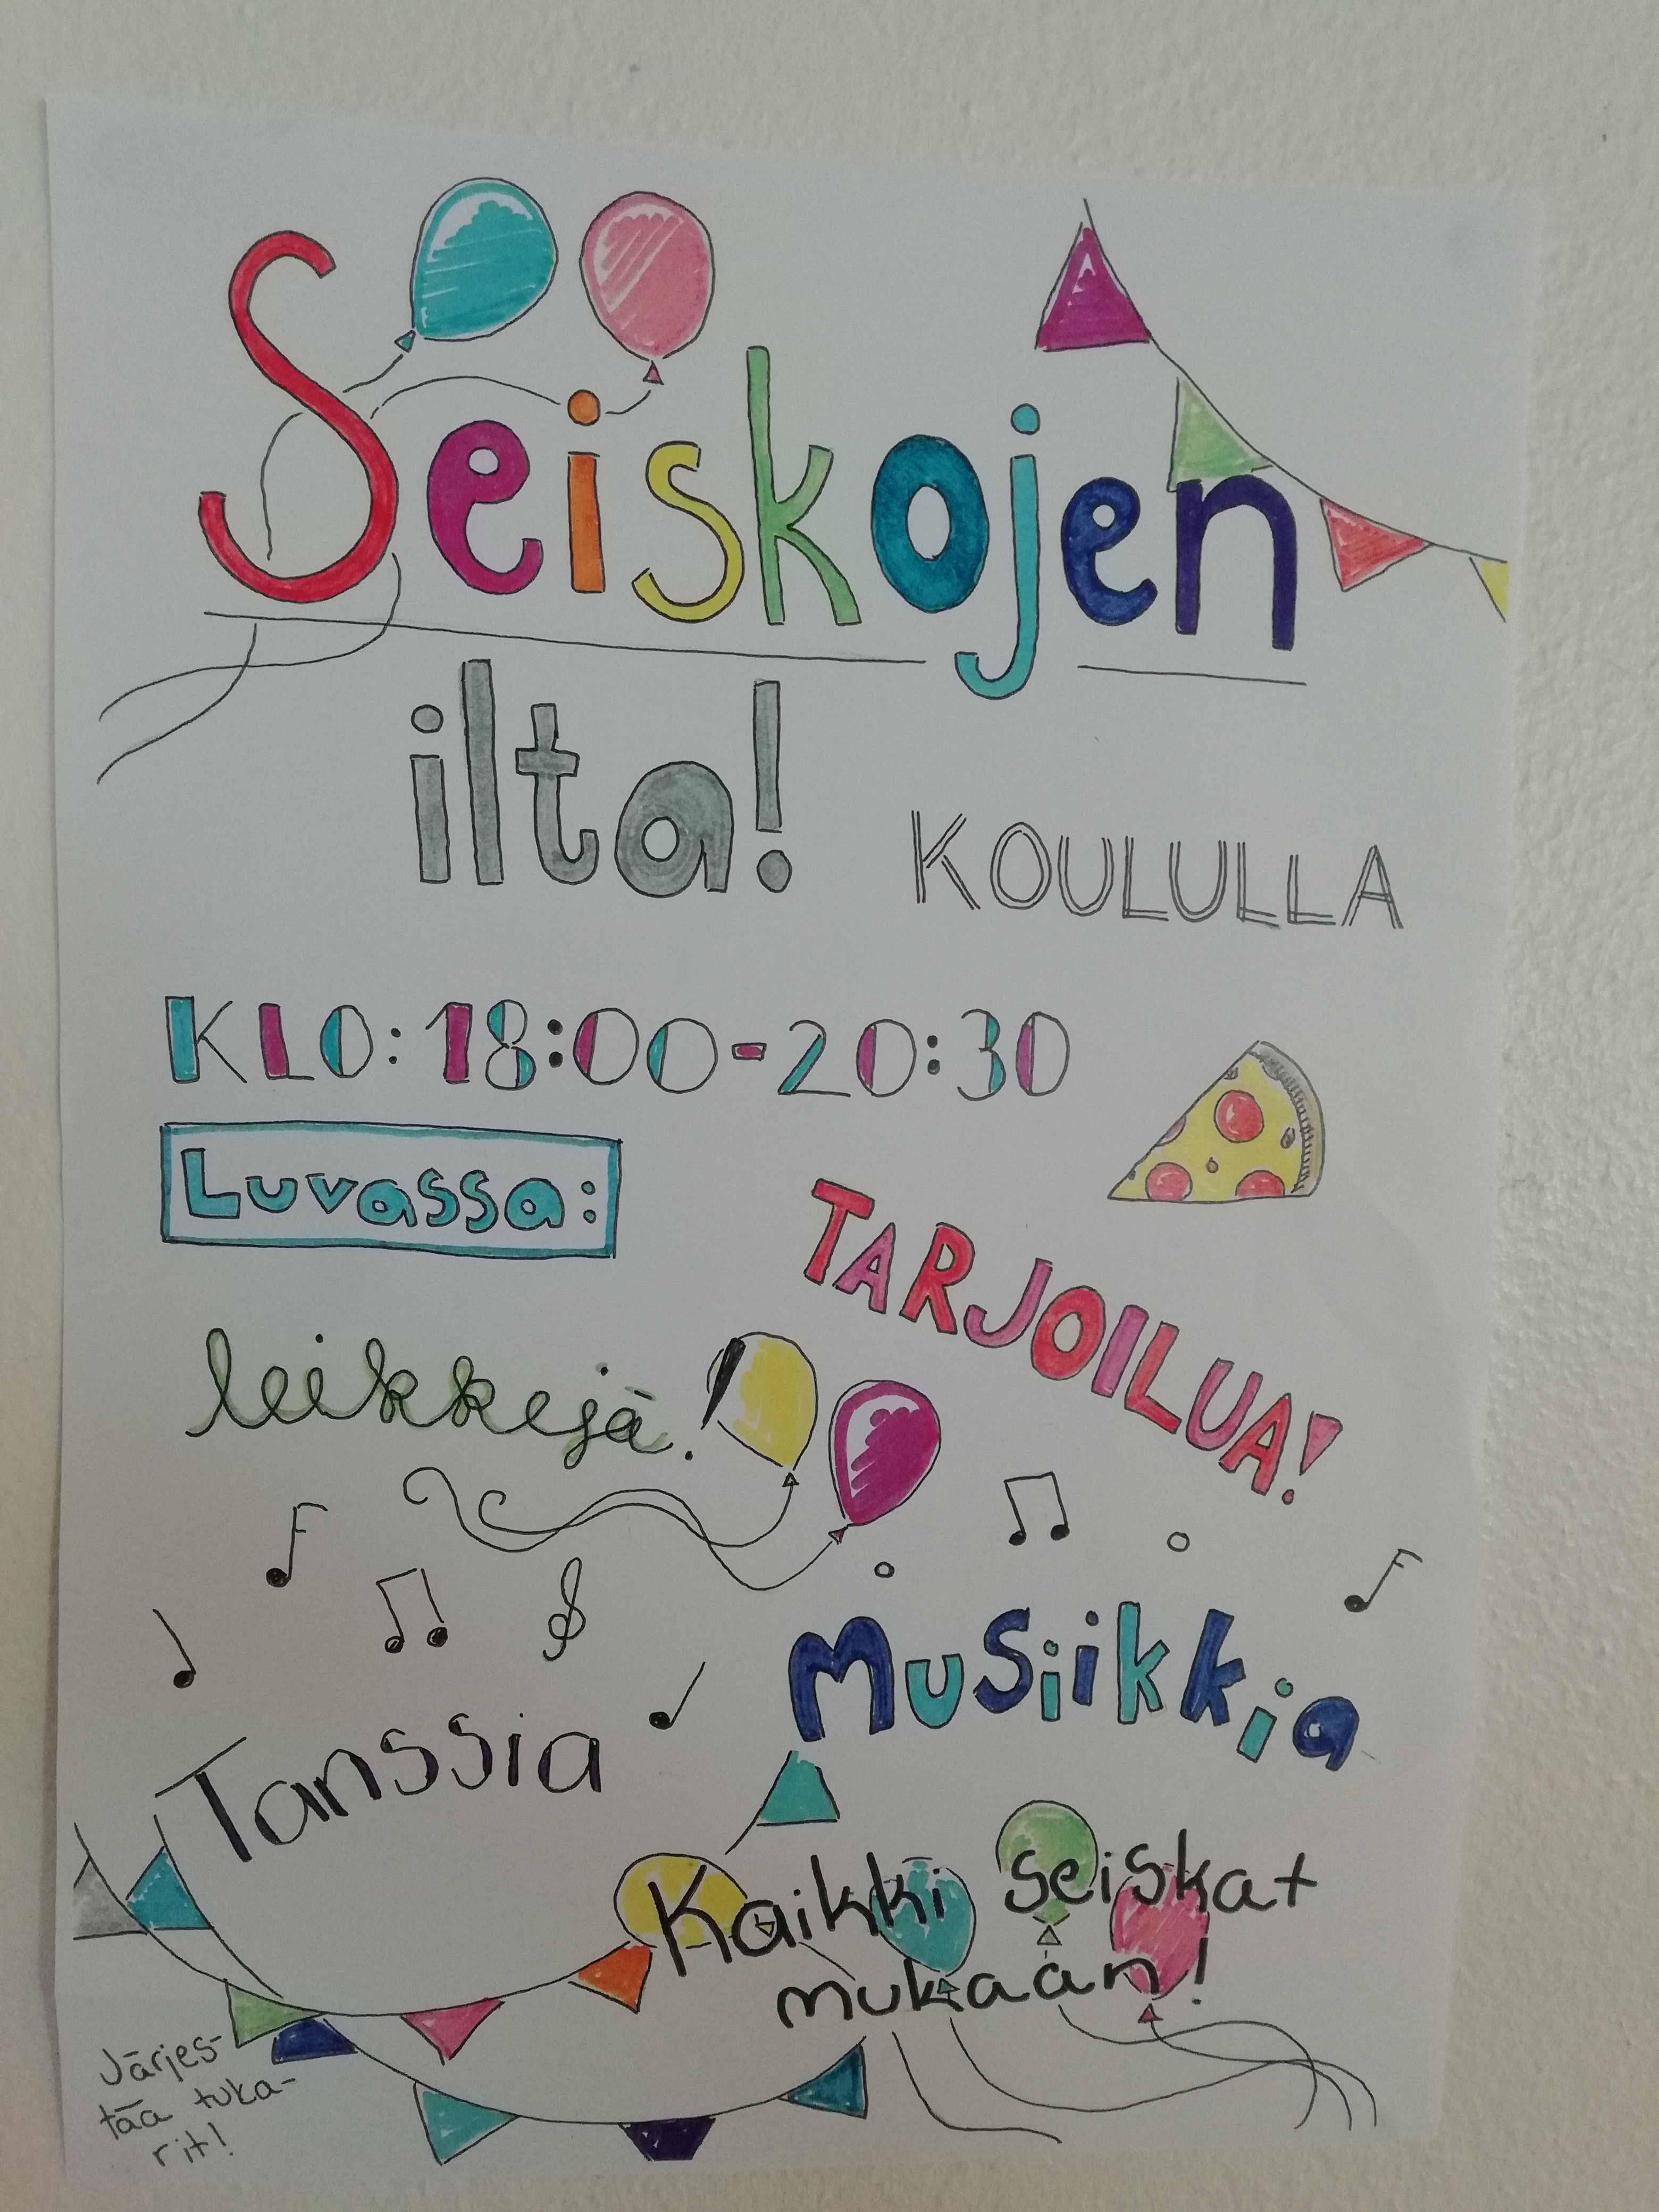 Seiskojen
ilta!
KOULULLA
KLO: 18:00-20:30
Luvassa:
TARJOILUA!
leikkejä!
Musiikkia
Tanssia
Kaikki seiskat
mukaan!
Järjes-
tää tuka-
rit!